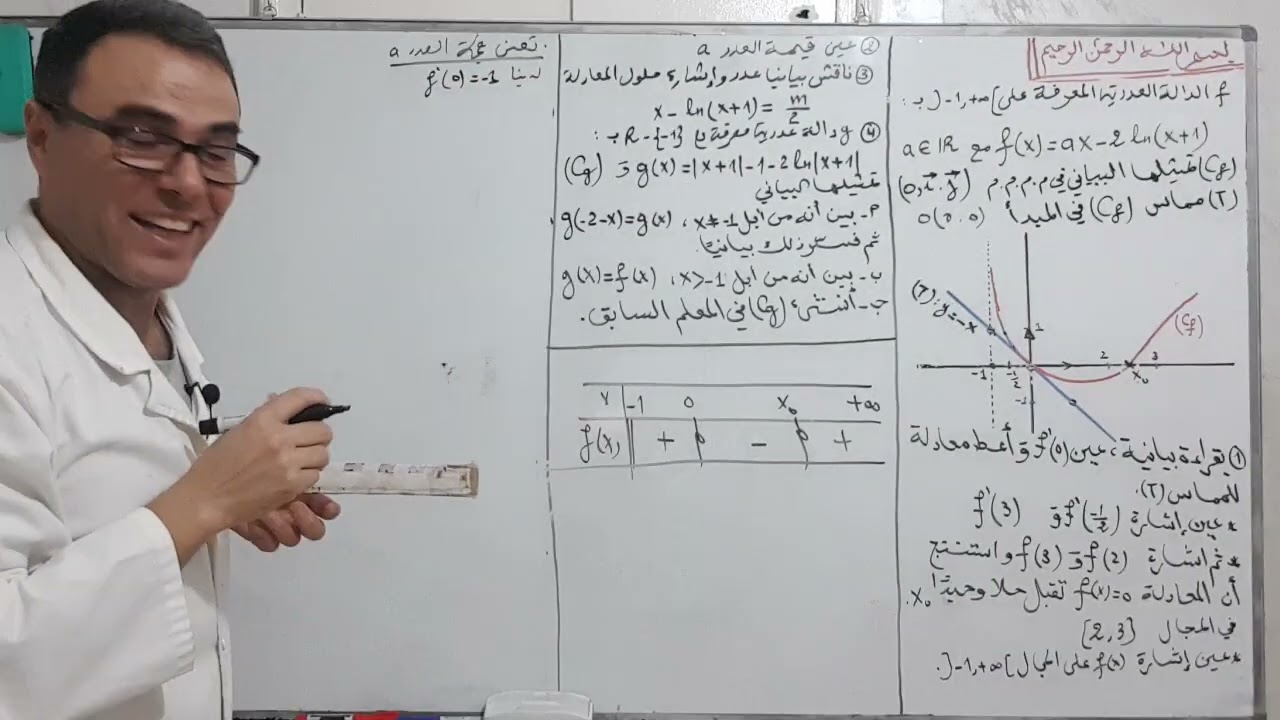 بسم الله الرحمن الرحيم
f الدالة العددية المعرفة على ]-1,+∞[ بـ:
a∈ℝ مع f(x)=ax-2ln(x+1)
(Cf) تمثيلها البياني في م.م.م.م (0,i⃗,j⃗)
(T) مماس (Cf) في المبدأ O(0,0)
(T): y=-x
(Cf)
1
-1
-1/2
2
x₀
3
-1
① بقراءة بيانية، عين f'(0) و أعط معادلة
للمماس (T).
* عين إشارة f'(-1/2) و f'(3)
* ثم اشارة f(2) و f(3) واستنتج
أن المعادلة f(x)=0 تقبل حلا وحيدًا x₀.
في المجال [2,3]
* عين إشارة f(x) على المجال ]-1,+∞[.
② عين قيمة العدد a
③ ناقش بيانيا عدد وإشارة حلول المعادلة
x-ln(x+1)=m/2
④ g دالة عددية معرفة ع ℝ-{-1} بـ:
g(x)=|x+1|-1-2ln|x+1| و (Cg)
تمثيلها البياني
م- بين أنه من أجل x≠-1، g(-2-x)=g(x)
ثم فسر ذلك بيانيًا.
ب- بين أنه من أجل x>-1، g(x)=f(x)
ج- أنشئ (Cg) في المعلم السابق.
x -1 0 x₀ +∞
f(x) + 0 - 0 +
تعين قيمة العدد a
لدينا f'(0)=-1